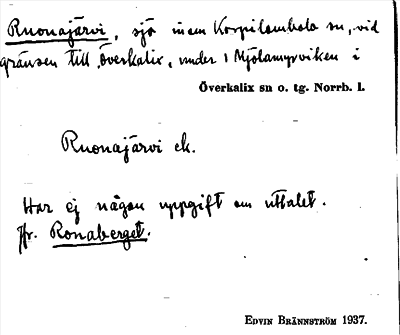 Ruonajärvi, sjö inom Korpilombolo sn, vid
gränsen till Överkalix, under 1 Mjölamyrviken i
Överkalix sn o. tg. Norrb. l.
Ruonajärvi ek.
Har ej någon uppgift om uttalet.
Jfr. Ronaberget.
Edvin Brännström 1937.